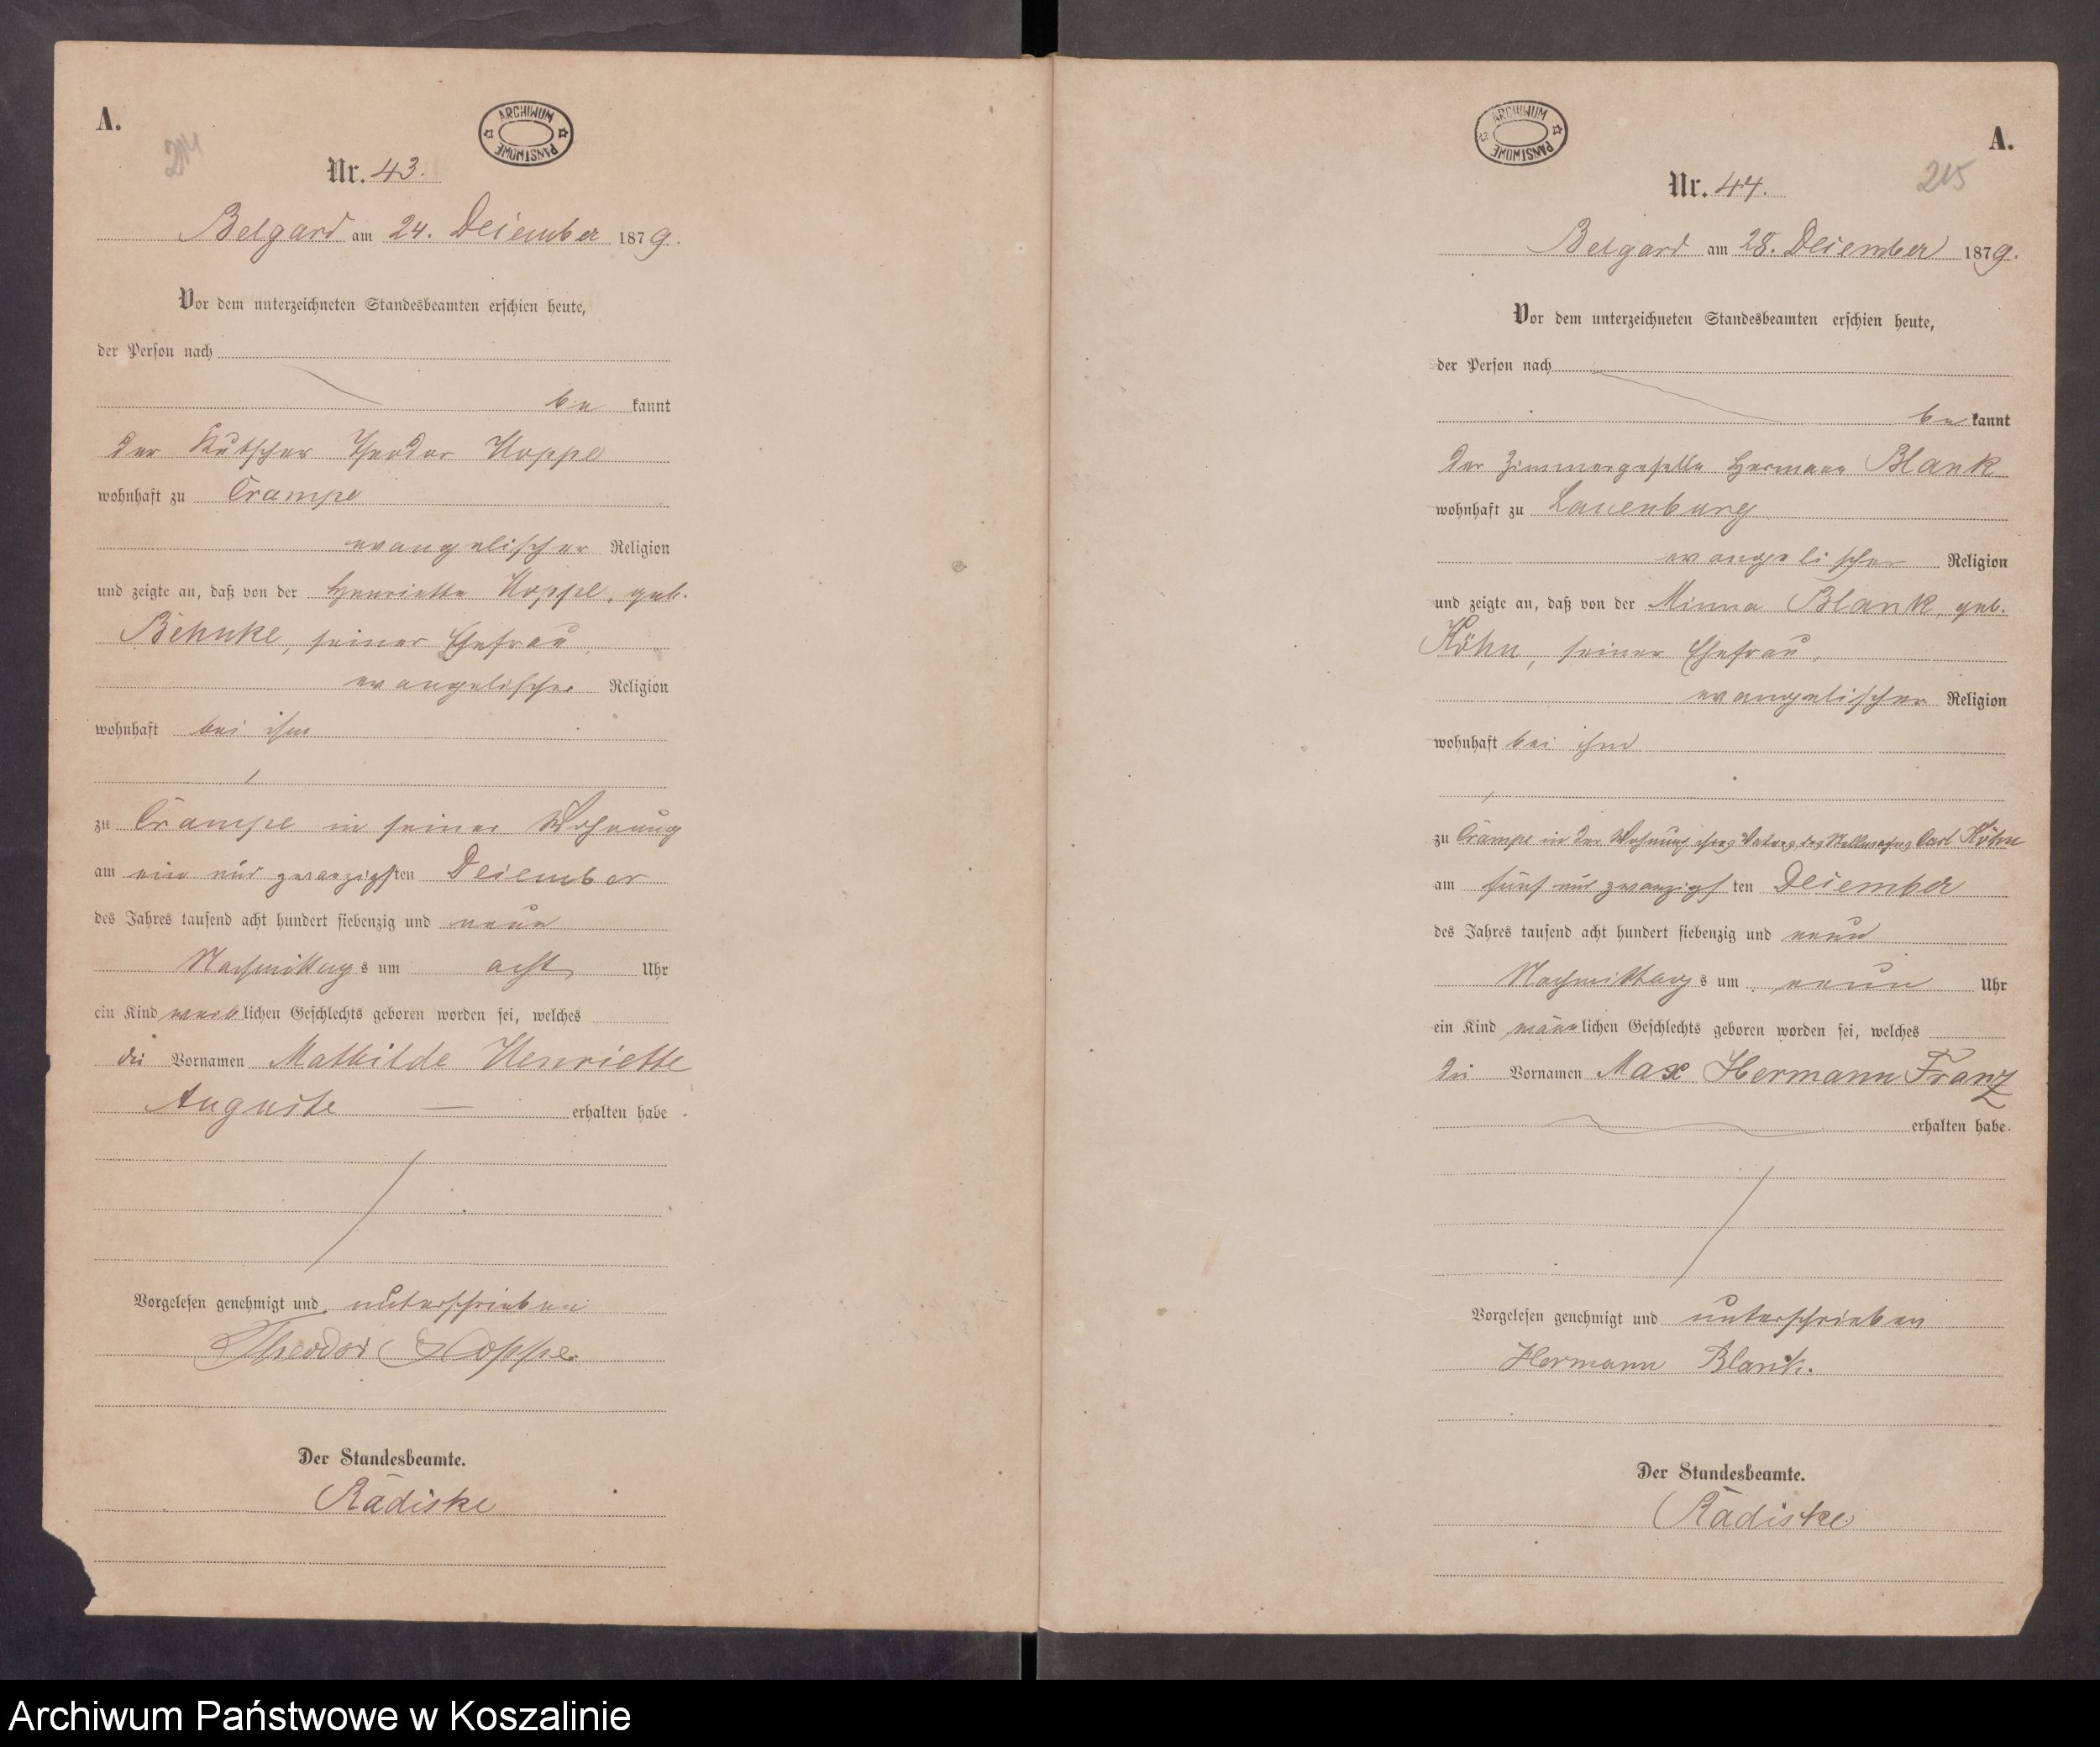 A.
214
ARCHIWUM PAŃSTWOWE
Nr. 43.
Belgard am 24. Deiember 1879.
Vor dem unterzeichneten Standesbeamten erschien heute,
der Person nach
be kannt
der Kutscher Theodor Hoppe
wohnhaft zu Crampe
evangelischer Religion
und zeigte an, daß von der Henriette Hoppe, geb.
Behnke, seiner Ehefrau,
evangelischer Religion
wohnhaft bei ihm
zu Crampe in seiner Wohnung
am ein und zwanzigsten Deiember
des Jahres tausend acht hundert siebenzig und neun
Nachmittags um acht Uhr
ein Kind weiblichen Geschlechts geboren worden sei, welches
die Vornamen Mathilde Henriette
Auguste — erhalten habe.
Vorgelesen genehmigt und unterschrieben
Theodor Hoppe.
Der Standesbeamte.
Rädiske
A.
215
ARCHIWUM PAŃSTWOWE
Nr. 44.
Belgard am 28. Deiember 1879.
Vor dem unterzeichneten Standesbeamten erschien heute,
der Person nach
be kannt
der Zimmergeselle Hermann Blank
wohnhaft zu Lauenburg
evangelischer Religion
und zeigte an, daß von der Minna Blank, geb.
Köhn, seiner Ehefrau,
evangelischer Religion
wohnhaft bei ihm
zu Crampe in der Wohnung ihres Vaters, des Carl Köhn
am fünf und zwanzigsten Deiember
des Jahres tausend acht hundert siebenzig und neun
Nachmittags um neun Uhr
ein Kind männlichen Geschlechts geboren worden sei, welches
die Vornamen Max Hermann Franz
erhalten habe.
Vorgelesen genehmigt und unterschrieben
Hermann Blank.
Der Standesbeamte.
Rädiske
Archiwum Państwowe w Koszalinie